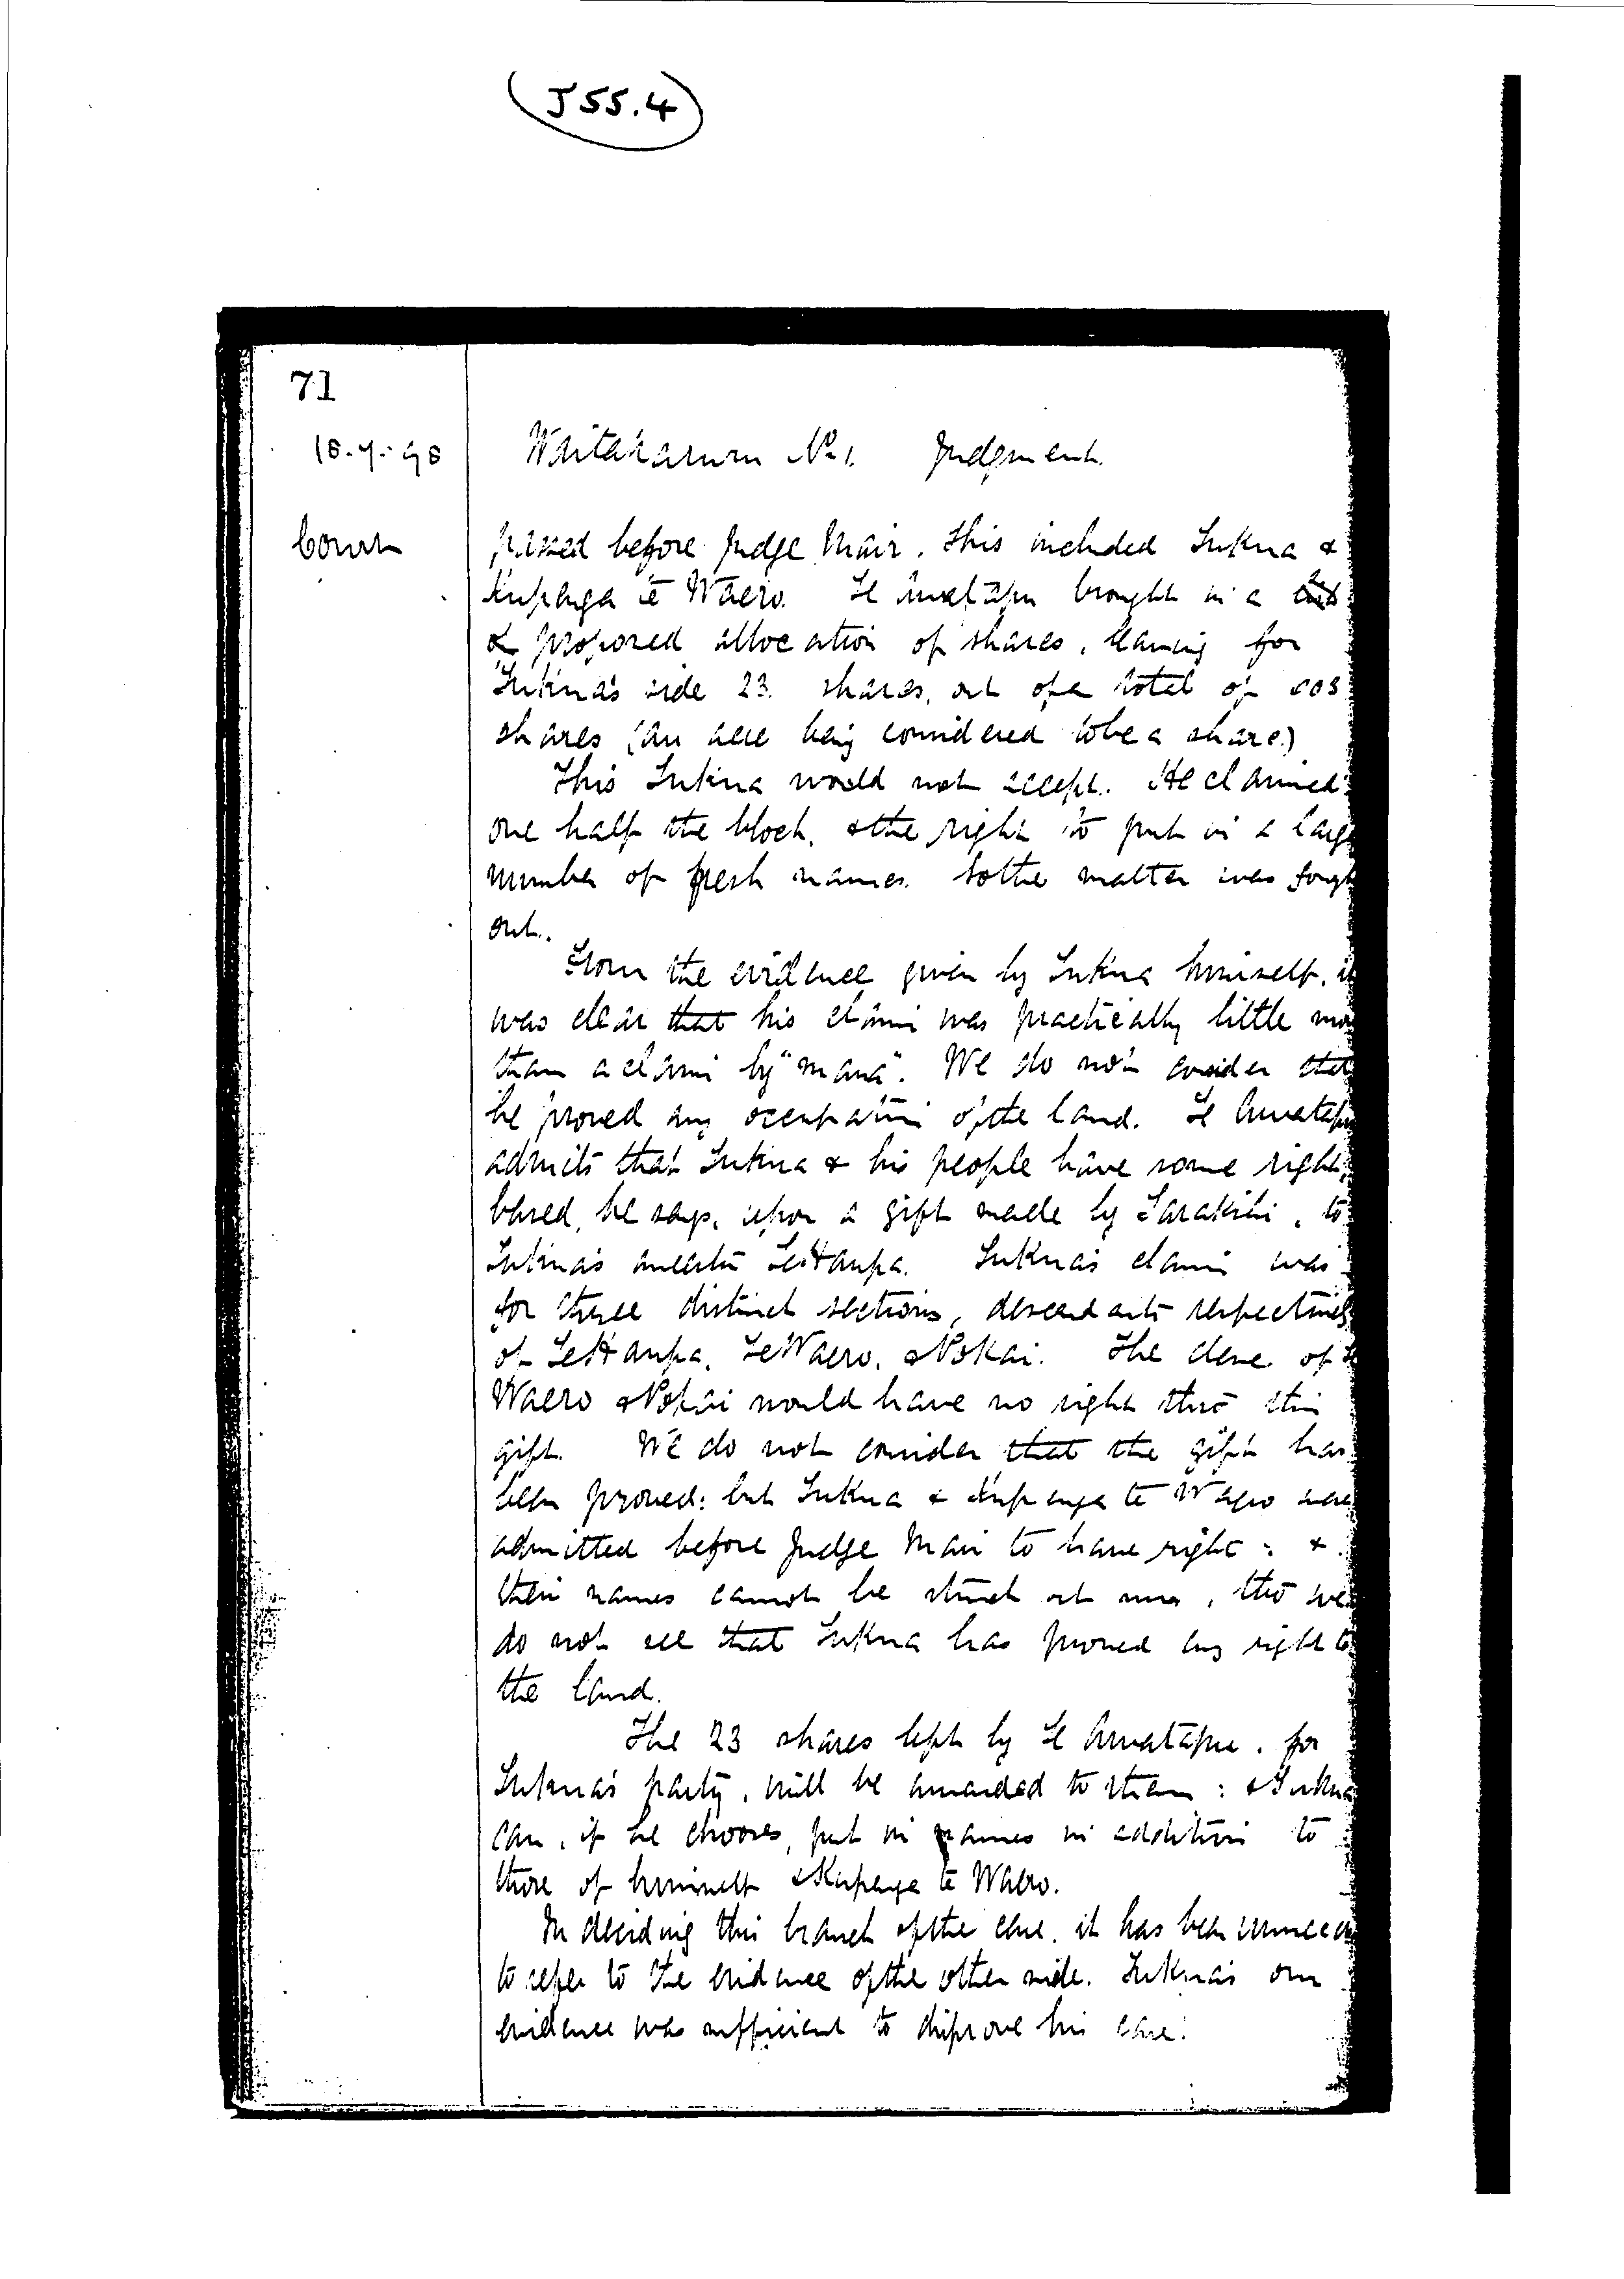 (J55.4)
71
18.7.98
Waitakaruru No 1. Judgment.
Court
passed before Judge Mair. This included Tukua &
Kupenga te Waero. Te Awatapu brought in a list
& proposed allocation of shares, leaving for
Tukua's side 23 shares, out of a total of
shares (an acre being considered to be a share.)
This Tukua would not accept. He claimed
one half the block, & the right to put in a large
number of fresh names. So the matter was fought
out.
From the evidence given by Tukua himself, it
was clear that his claim was practically little more
than a claim by "mana". We do not consider that
he proved any occupation of the land. Te Awatapu
admits that Tukua & his people have some right,
based, he says, upon a gift made by Tarakihi, to
Tukua's ancestor Te Haupa. Tukua's claim was
for three distinct sections, descendants respectively
of Te Haupa, Te Waero, & Pokai. The desc. of Te
Waero & Pokai would have no right thro' this
gift. We do not consider that the gift has
been proved: but Tukua & Kupenga te Waero were
admitted before Judge Mair to have right: &
their names cannot be struck out now, tho' we
do not see that Tukua has proved any right to
the land.
The 23 shares left by Te Awatapu, for
Tukua's party, will be awarded to them: & Tukua
can, if he chooses, put in names in addition to
those of himself & Kupenga te Waero.
In deciding this branch of the case, it has been
to refer to the evidence of the other side. Tukua's own
evidence was sufficient to disprove his case.